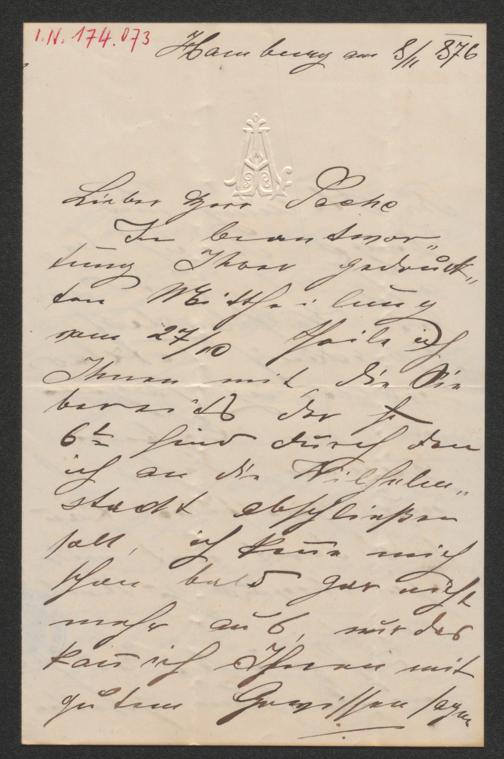 I.N. 174.073
Hamburg am 8/11 876
A
Lieber Herr
In beantwor„
tung Ihrer gedruck„
ten Mittheilung
vom 27/10 theile ich
Ihnen mit, die Sie
bereits der
6te sind durch den
ich an die Wilhelm„
stadt abschließen
soll, ich kenne mich
schon bald gar nicht
mehr aus, nur das
kann ich Ihnen mit
gutem Gewissen sagen